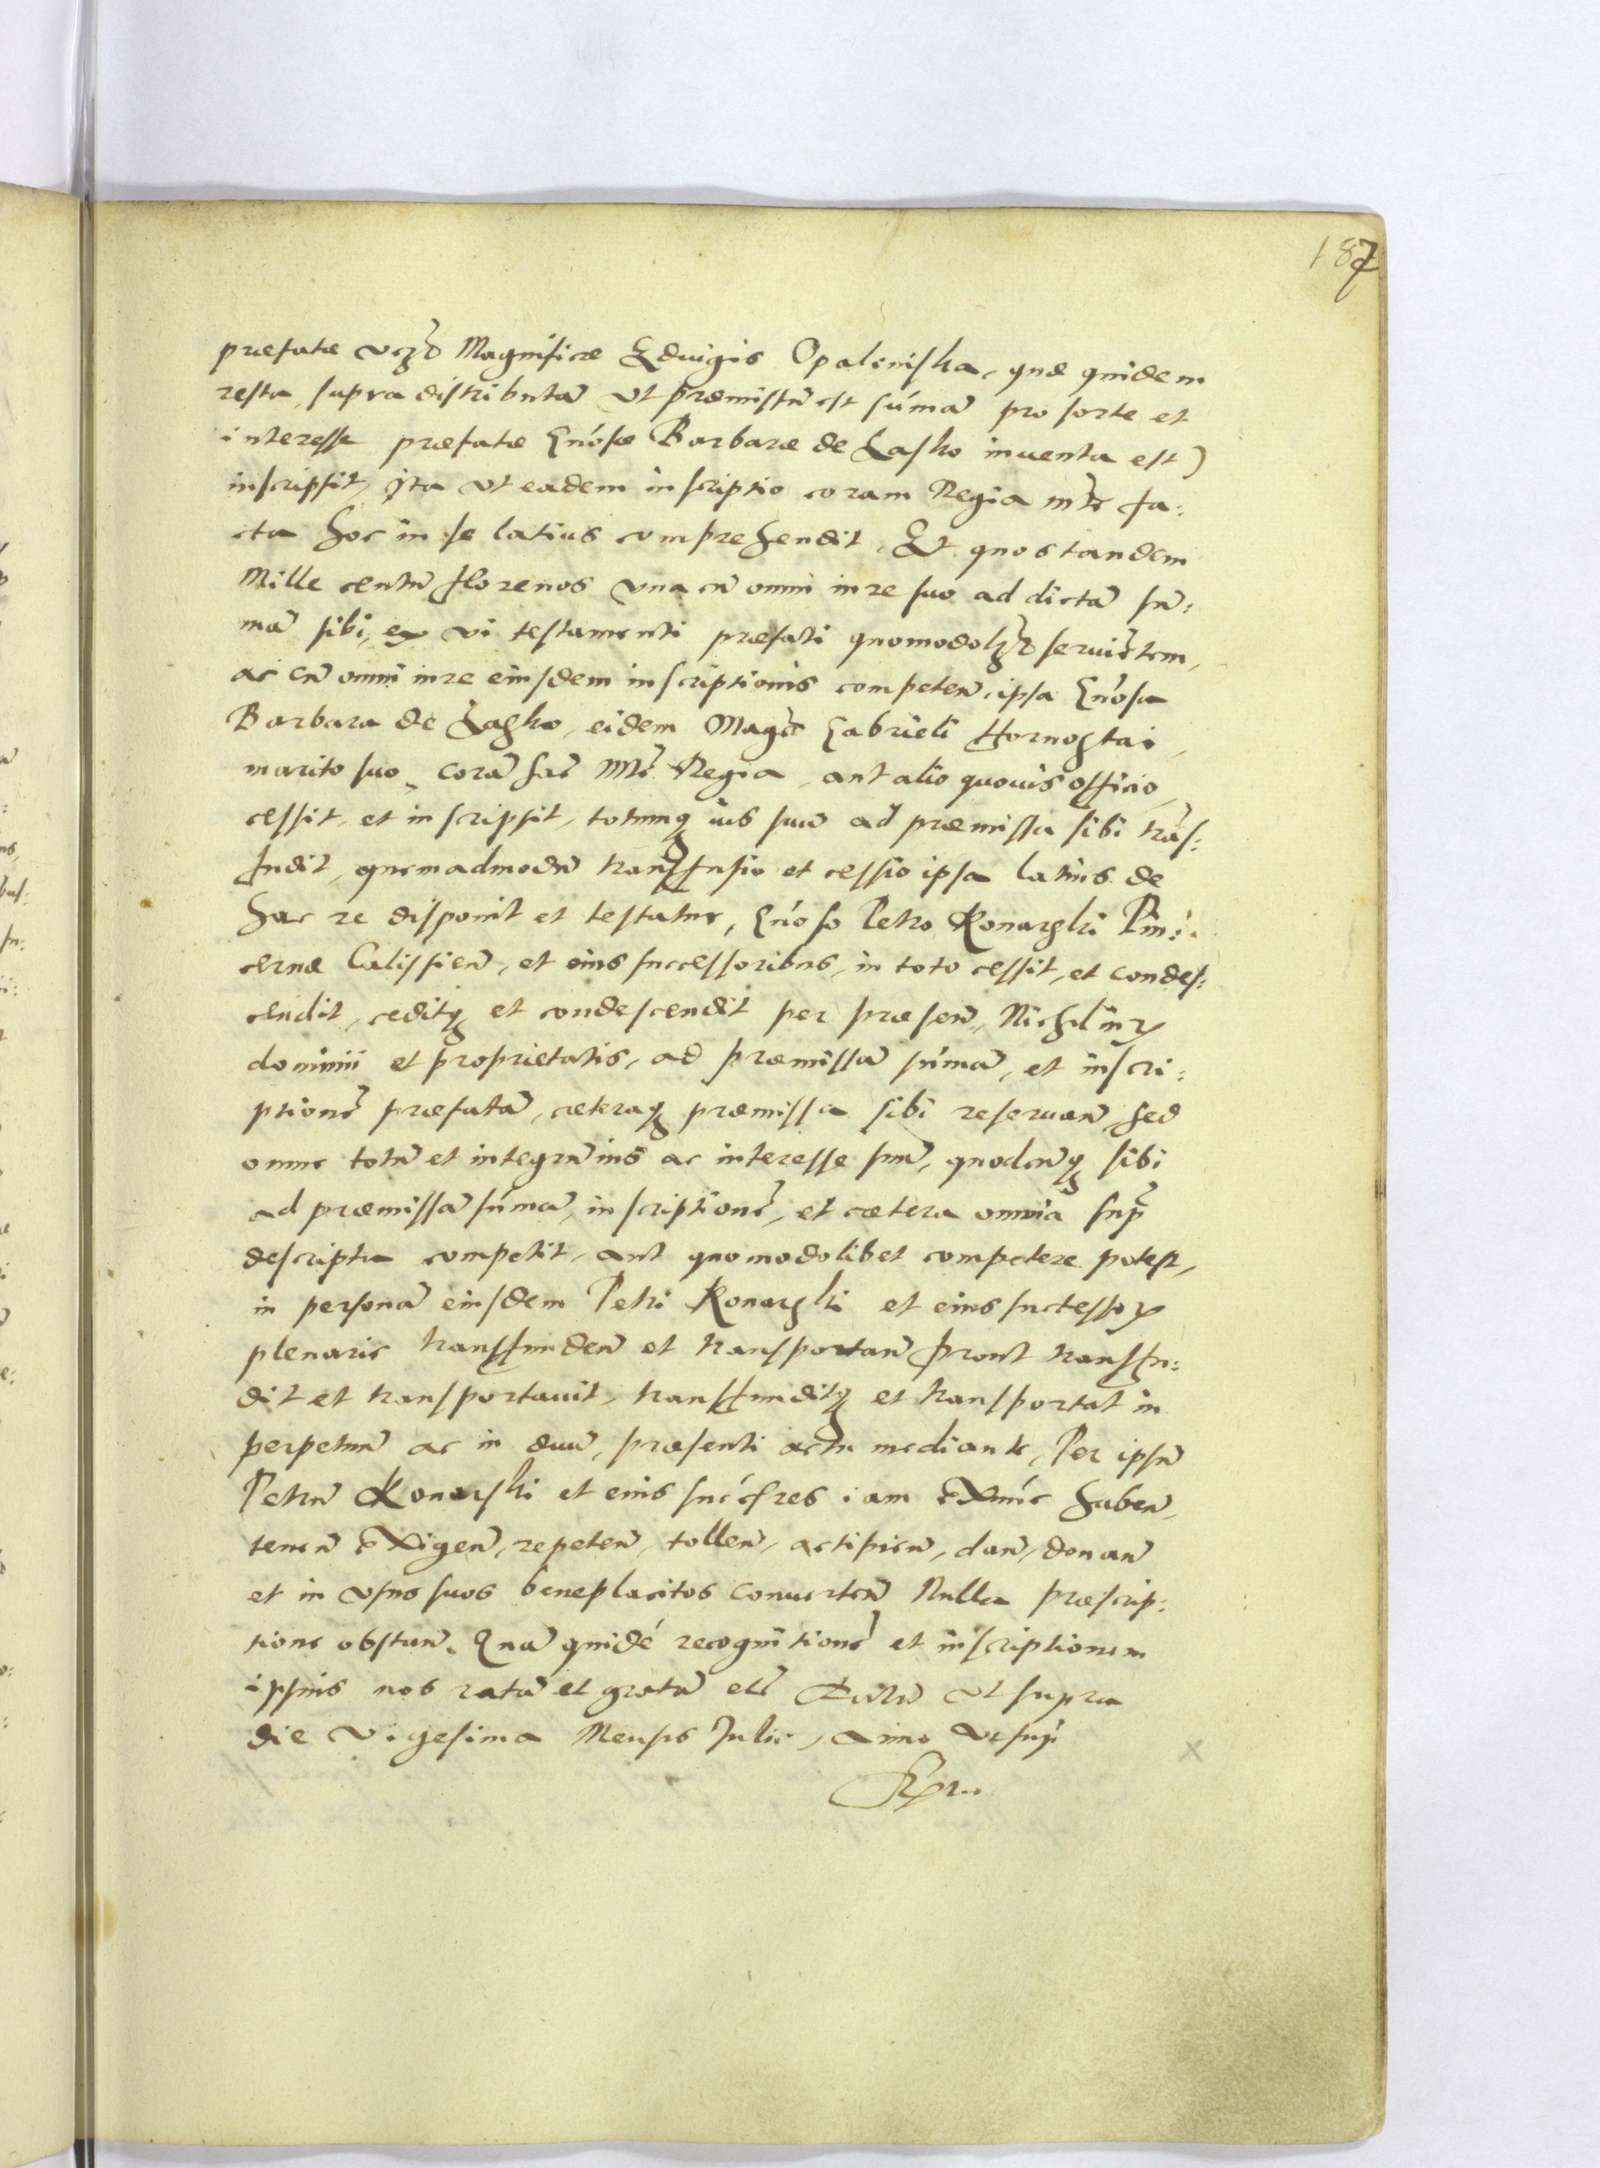 187
præfatæ Magnificæ Eduigis Opaleniska, quæ quidem
resta supra distributã Ut præmissũ est sũmã pro sorte et
interesse præfatæ Gñosæ Barbaræ de Lasko inuenta est)
inscripsit, Ita Ut eadem inscriptio coram Regia mte fa:
cta hoc in se latius comprehendit, Et quos tandem
Mille centũ florenos Vna cũ omni iure suo ad dictã sũ:
mã sibi, ex vi testamenti præfati seruiẽtem,
ac cũ omni iure eiusdem inscriptionis competeñ, ipsa Gñosa
Barbara de Lasko, eidem Magco Gabrieli Hornostai,
marito suo, corã sac Mte Regia, aut alio quouis officio,
cessit, et inscripsit, totumq ius suũ ad præmissa sibi trãs:
fudit, quemadmodũ transffusio et cessio ipsa latius de
hac re disponit et testatur, Gñoso Petro Konarski Pin:
cernæ Calissieñ, et eius successoribus, in toto cessit, et condes:
cendit, ceditq et condescendit per præseñ, Nichil iur
dominii et proprietatis, ad præmissã sũmã, et inscri:
ptionẽ præfatã, cæteraq præmissa sibi reseruañ sed
omne totũ et integrũ ius ac interesse suũ, quodcũq sibi
ad præmissã sũmã, inscriptionẽ, et cætera omnia sup
descripta competit, aut quomodolibet competere potest,
in personã eiusdem Petri Konarski et eius successor
plenarie transffundeñ et transportañ prout transffu:
dit et transportauit, transffunditq et transportat in
perpetuũ ac in æuũ, præsenti actu mediante, Per ipsũ
Petrũ Konarski et eius succesres iam habeñ,
teneñ Exigeñ, repeteñ, tolleñ, accipieñ, dañ, donañ
et in vsus suos beneplacitos conuerteñ Nulla præscrip:
tione obstañ. Quã quidẽ recognitionẽ et inscriptionem
ipsius nos ratã et gratã Ut supra
die vigesima Mensis Julii, Anno Vt sup
x